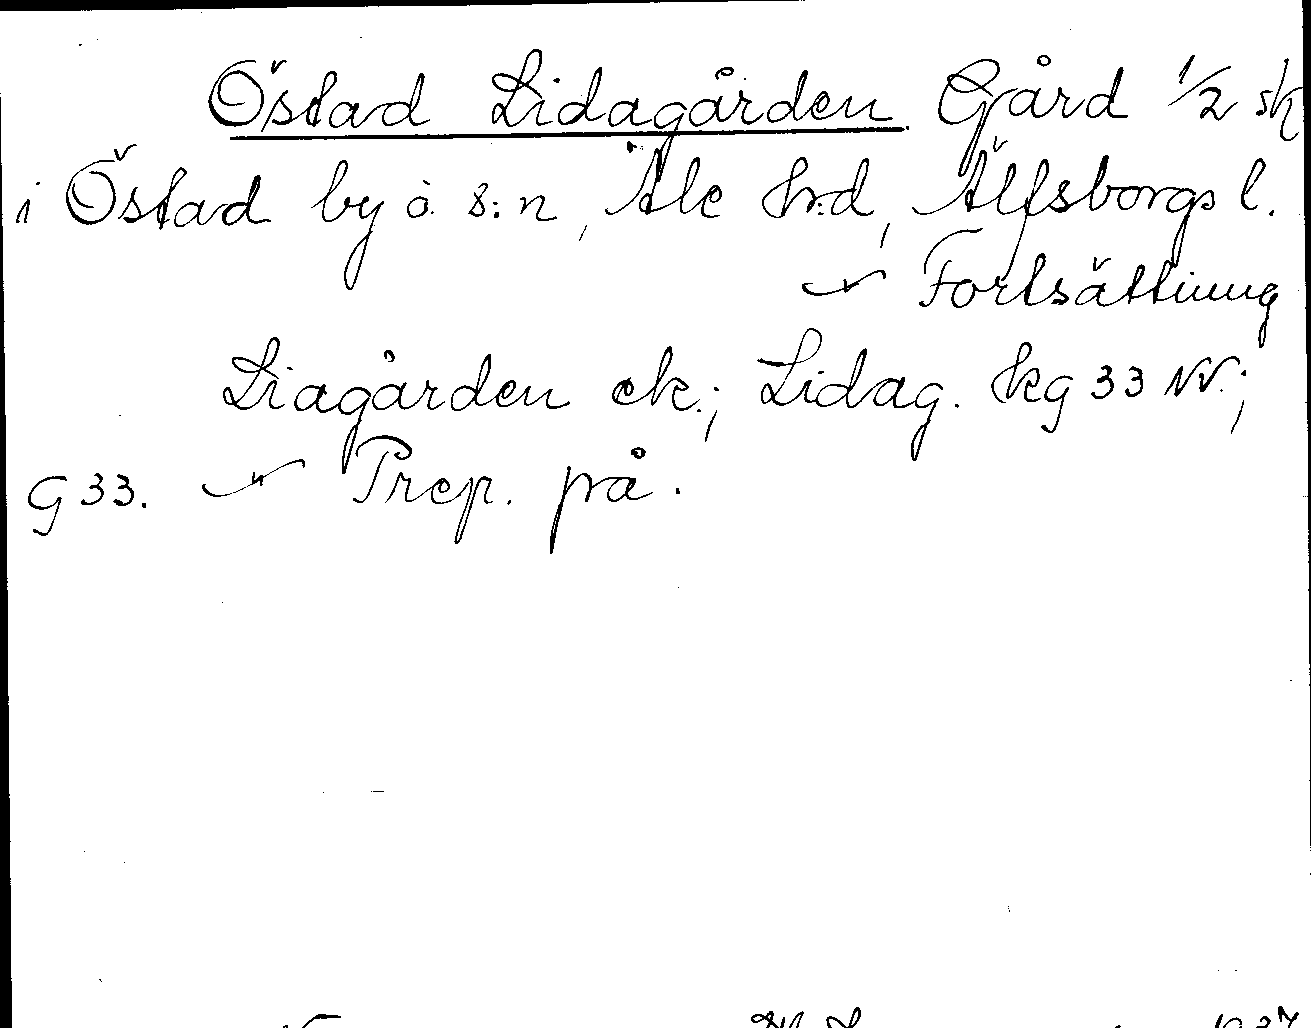 Östad Lidagården Gård 1/2 sk
i Östad by o. s:n, Ale hrd, Älfsborgs l.
Fortsättning
Liagården ek.; Lidag. kg 33 NV.;
G 33. Prep. på.